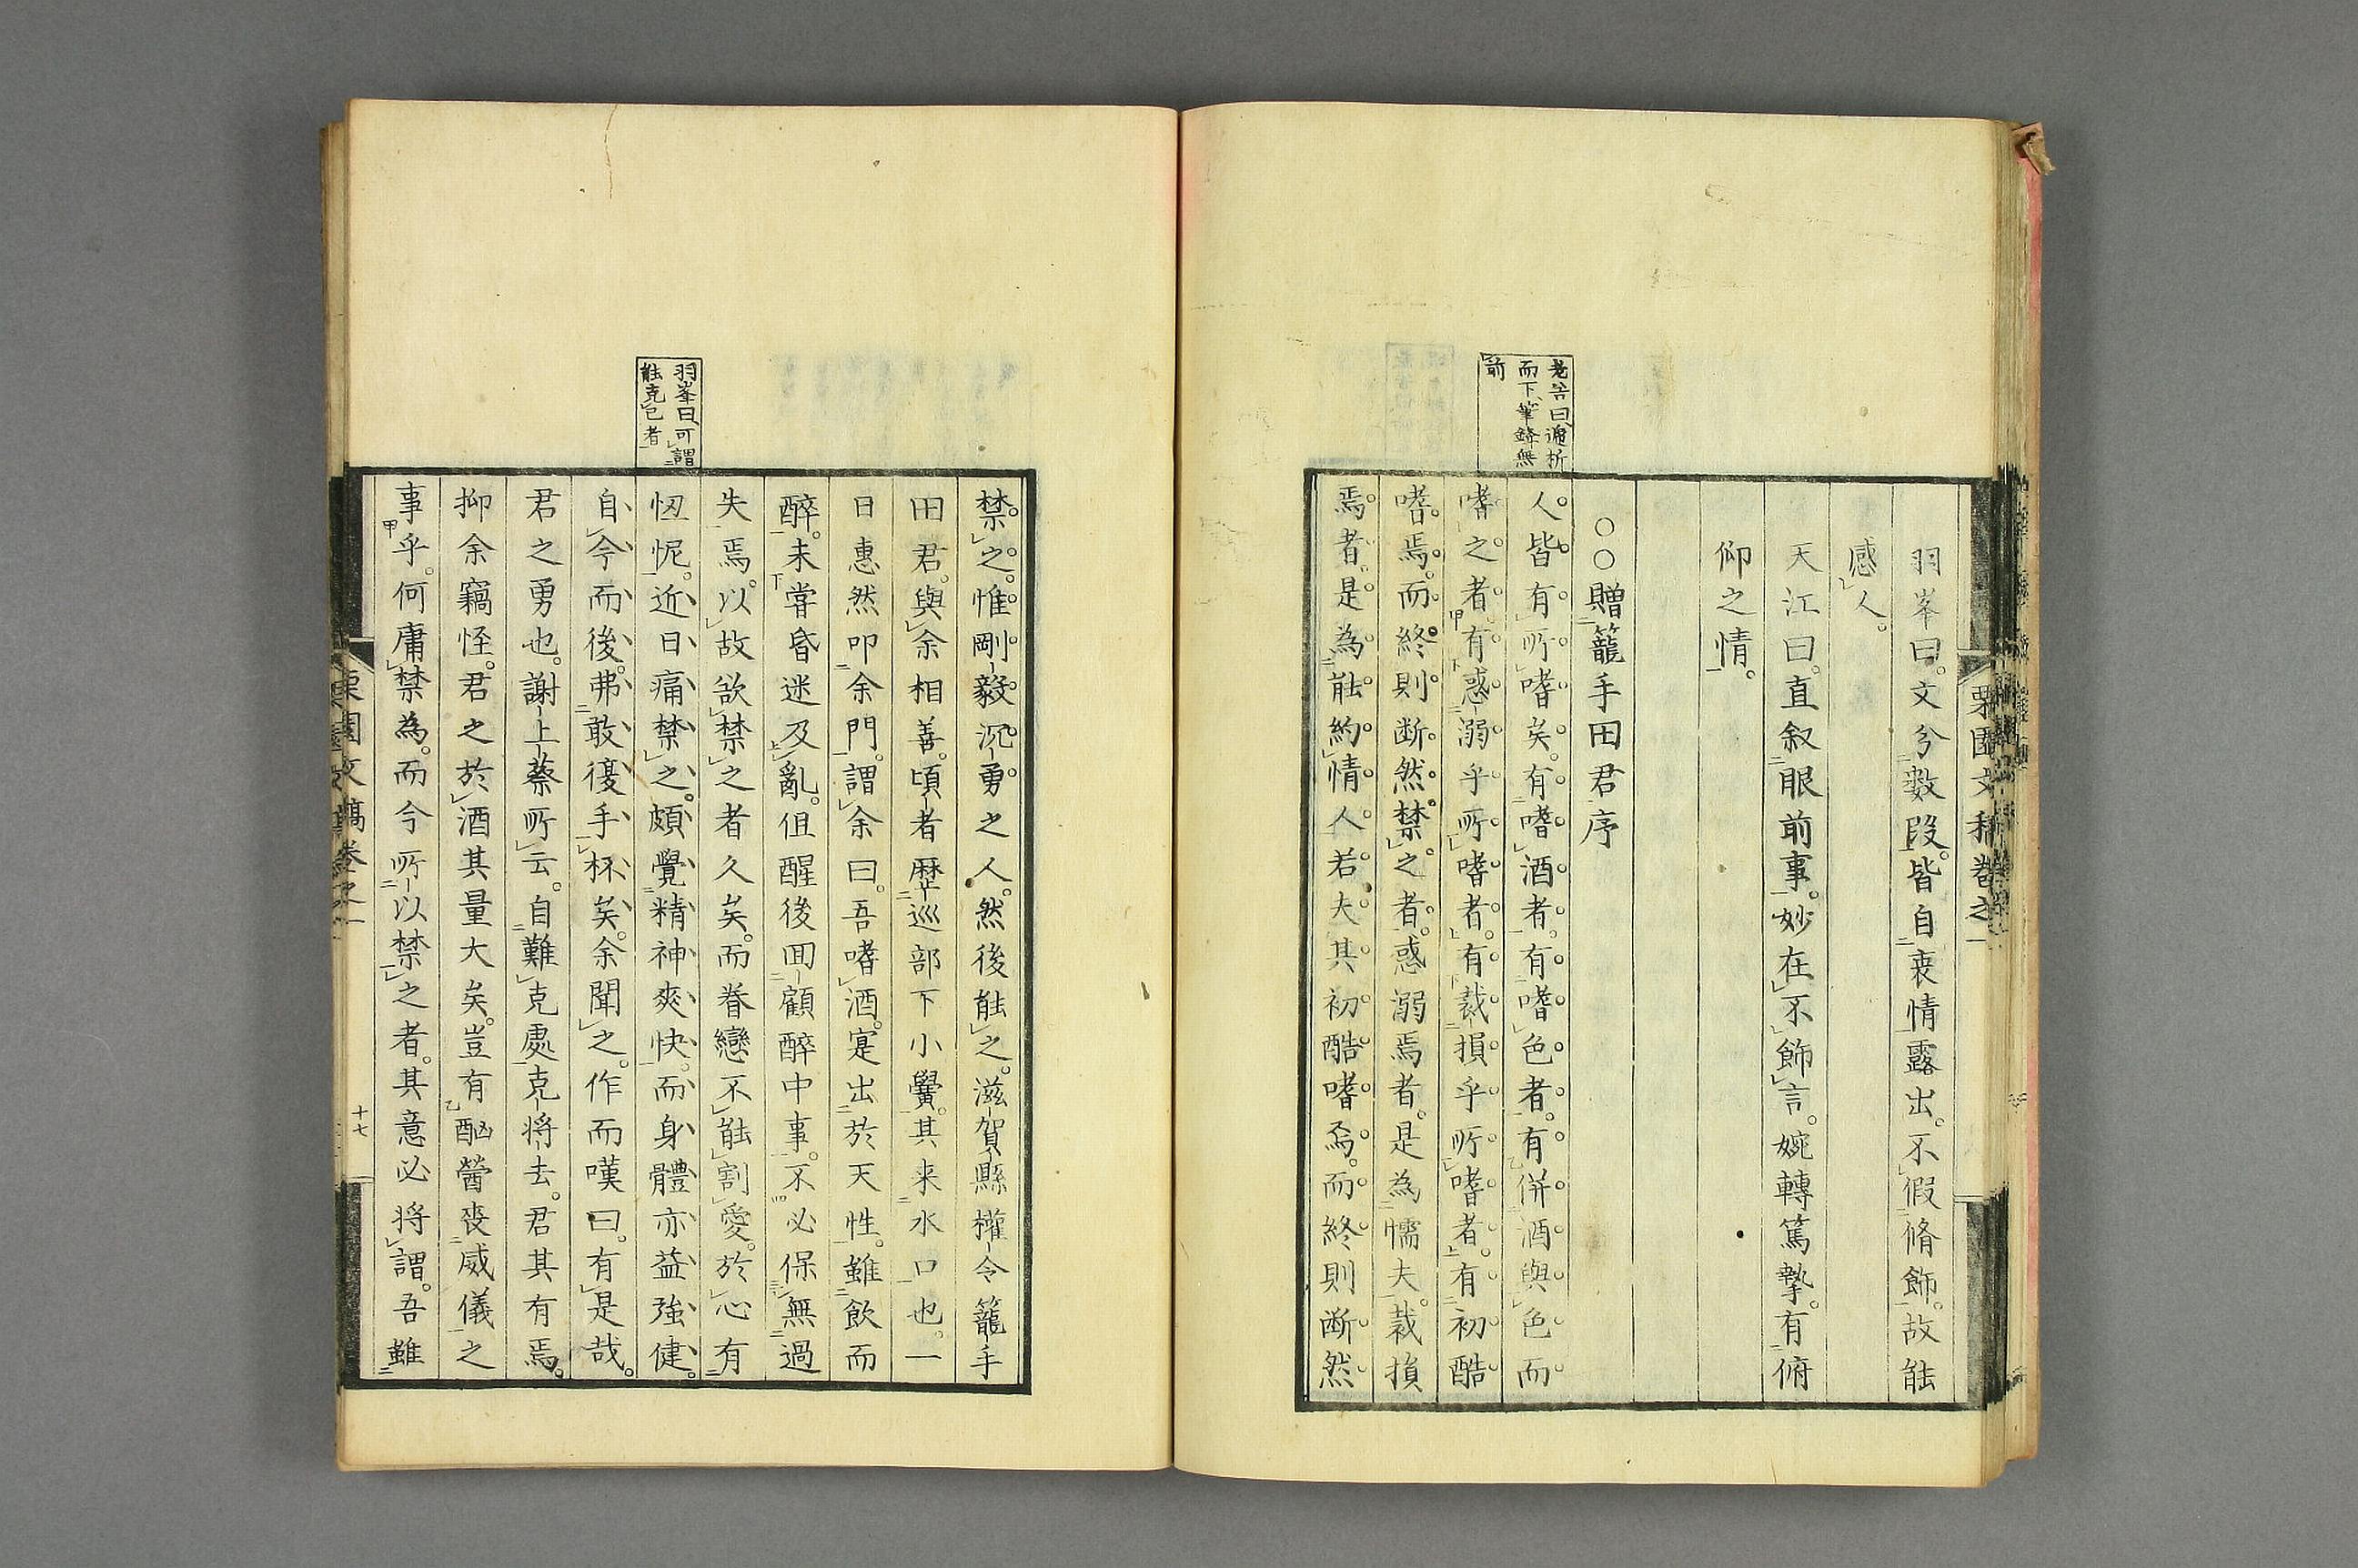 栗園文稿卷之一
羽峯曰。文分數段。皆自衷情露出。不假脩飾。故能
感人。
天江曰。直叙眼前事。妙在不飾言。婉轉篤摯。有俯
仰之情。
○○贈籠手田君序
人皆有所嗜矣。有嗜酒者。有嗜色者。有併酒與色而
嗜之者。有惑溺乎所嗜者。有裁損乎所嗜者。有初酷
嗜焉。而終則断然禁之者。惑溺焉者。是為懦夫。裁損
焉者。是為能約情人。若夫其初酷嗜焉。而終則断然
曰遞析
而下筆鋒無
前
禁之。惟剛毅沉勇之人。然後能之。滋賀縣權令籠手
田君。與余相善。頃者歷巡部下小黌。其来水口也。一
日惠然叩余門。謂余曰。吾嗜酒。寔出於天性。雖飲而
醉。未嘗昏迷及亂。但醒後囬顧醉中事。不必保無過
失焉。以故欲禁之者久矣。而眷戀不能割愛。於心有
忸怩。近日痛禁之。頗覺精神爽快。而身體亦益強健。
自今而後。弗敢復手杯矣。余聞之。作而嘆曰。有是哉。
君之勇也。謝上蔡所云。自難克處克将去。君其有焉。
抑余竊怪。君之於酒其量大矣。豈有酗醟喪威儀之
事乎。何庸禁為。而今所以禁之者。其意必将謂。吾雖
羽峯曰可謂
能克己者
栗園文稿卷之一
十七